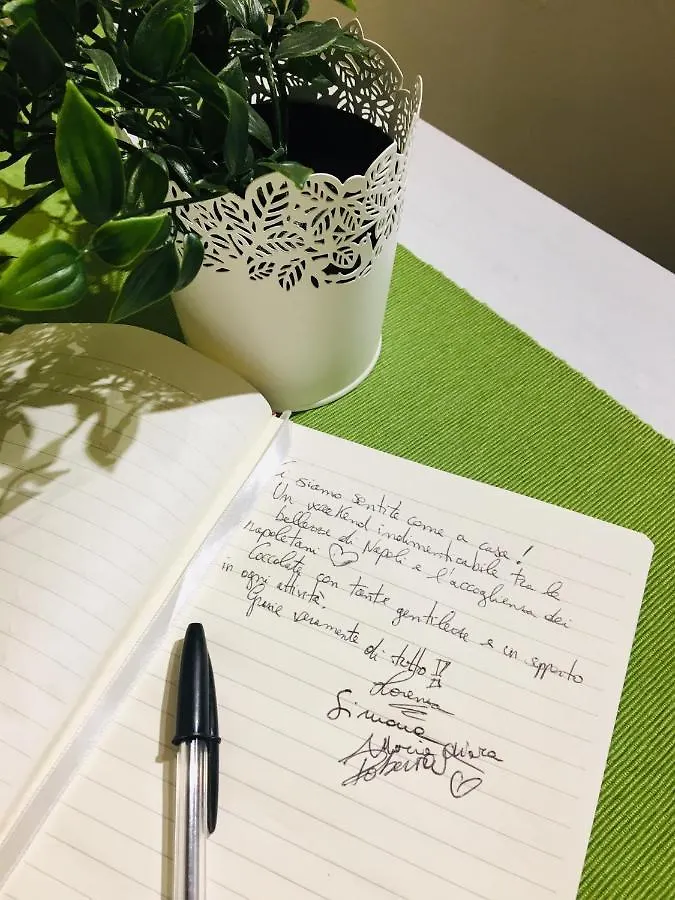 Ci siamo sentite come a casa!
Un weekend indimenticabile tra le
bellezze di Napoli e l'accoglienza dei
napoletani ♡
Coccolate con tanta gentilezza e un supporto
in ogni attività.
Grazie veramente di tutto
Lorenza
Simona
Maria Chiara
Roberta ♡